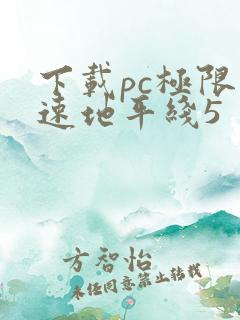 下載pc極限
速地平綫5
方智怡
未经同意禁止转载